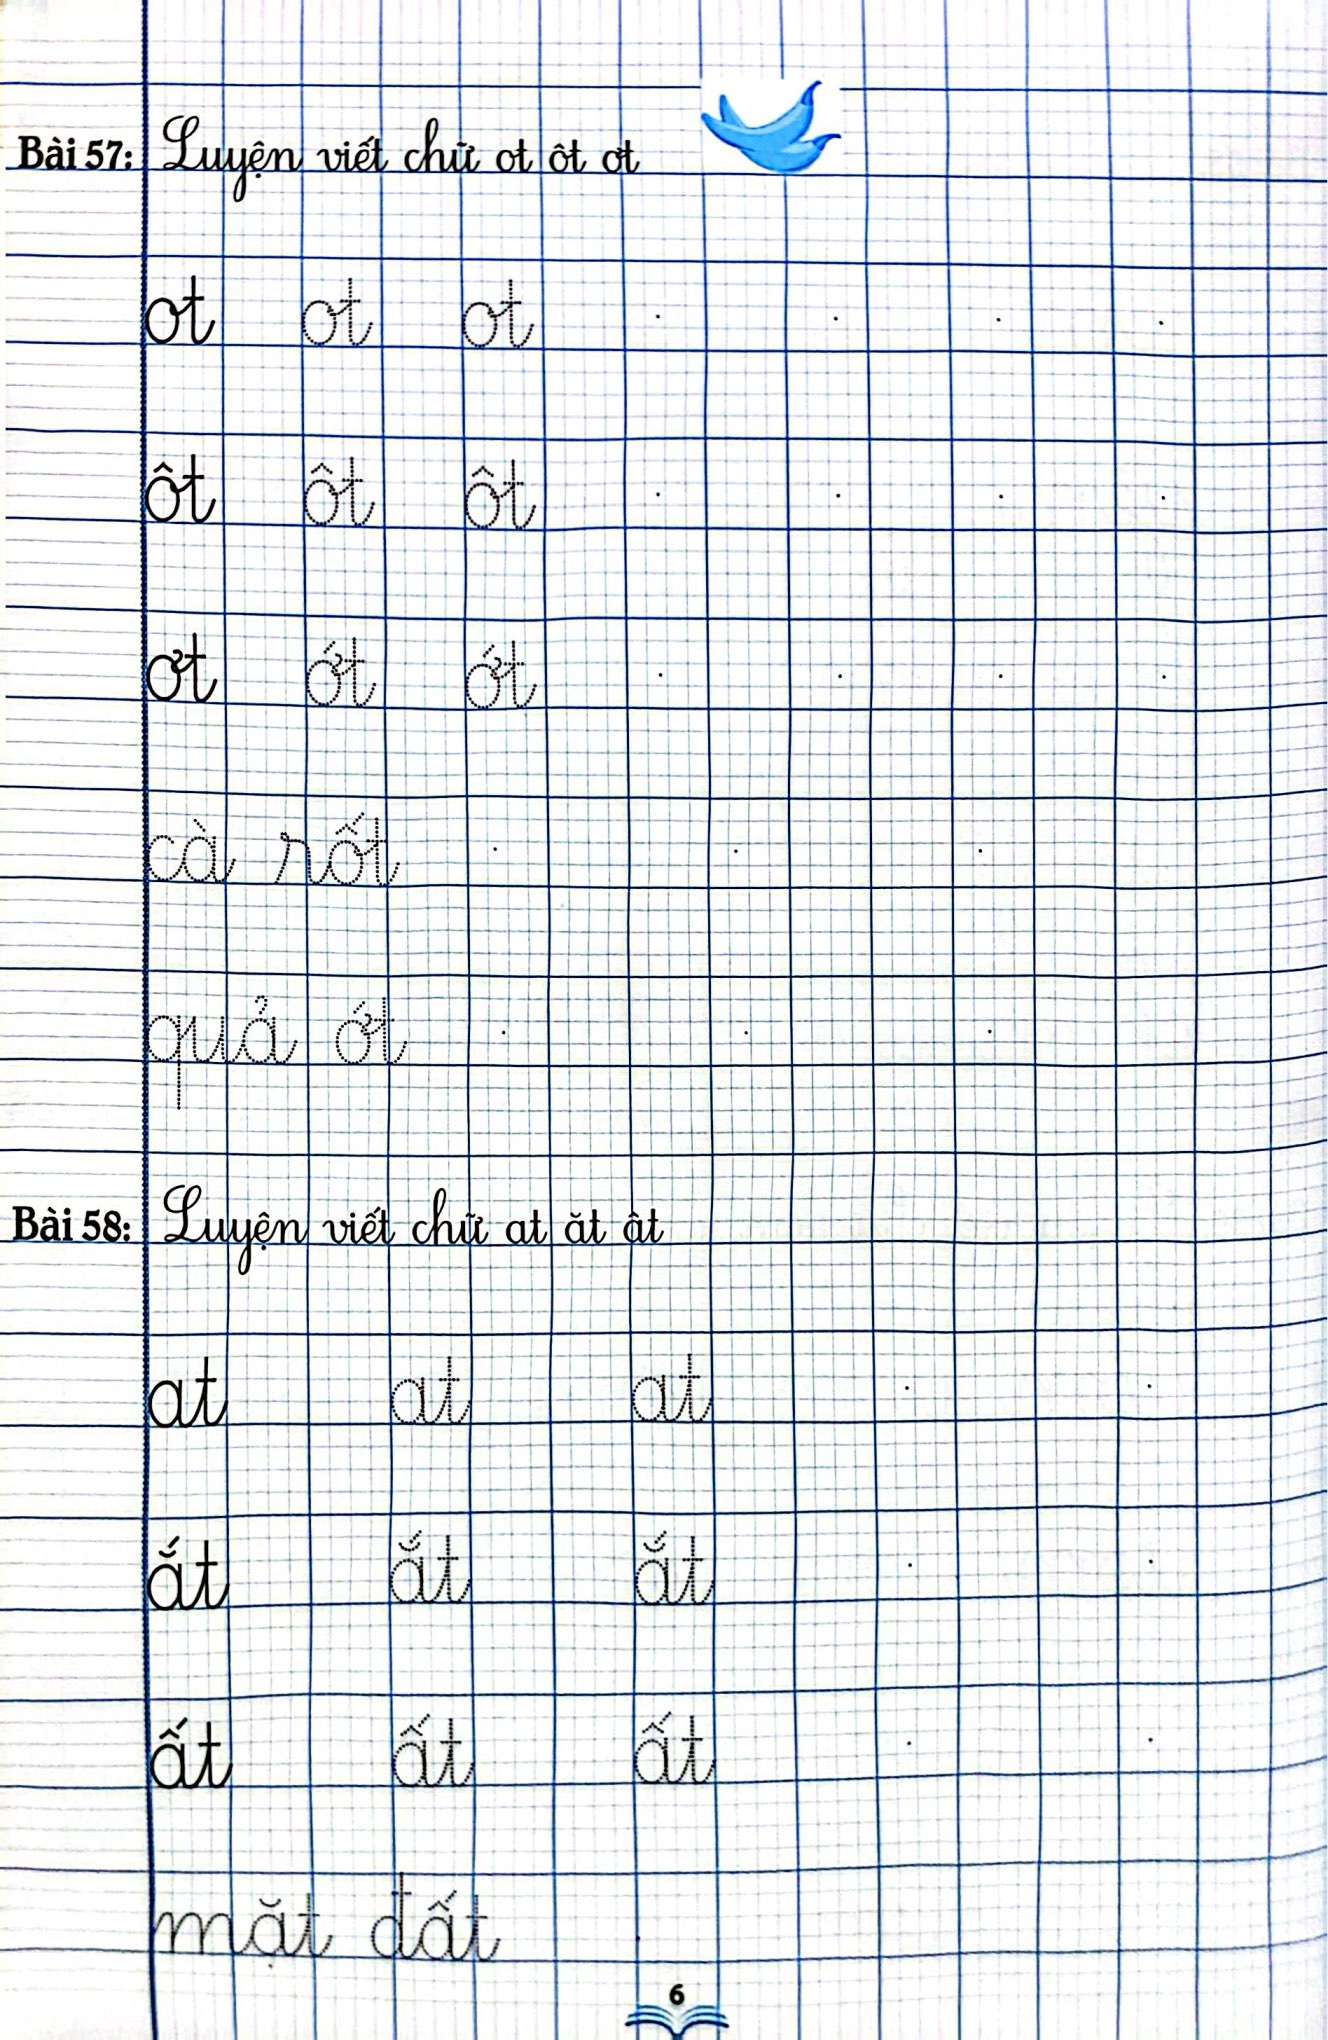 Bài 57: Luyện viết chữ ot ôt ơt
ot ot ot
ôt ôt ôt
ơt ớt ớt
cà rốt
quả ớt
Bài 58: Luyện viết chữ at ăt ât
at at at
ắt ắt ắt
ất ất ất
mặt đất
6